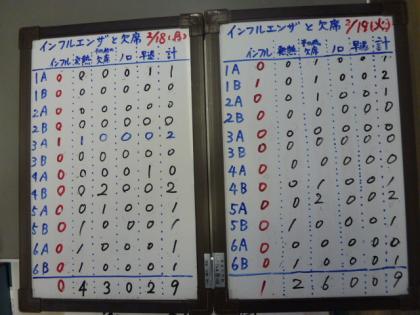 インフルエンザと欠席 2/18(月)
インフル 発熱 その他の欠席 ノロ 早退 計
1A 0 0 0 0 1 1
1B 0 0 0 0 0 0
2A 0 0 0 0 0 0
2B 0 0 0 0 0 0
3A 1 0 0 0 2
3B 0 0 0 0 0
4A 0 0 0 0 1 0
4B 0 0 2 0 0 2
5A 0 1 0 0
5B 0 0 0 0
6A 0 1 0 0 0 1
6B 0 1 0 0 1
0 4 3 0 2 9
インフルエンザと欠席 2/19(火)
インフル 発熱 その他の欠席 ノロ 早退 計
1A 0 0 1 0 0 1
1B 1 0 1 0 0 2
2A 0 0 1 0 0 1
2B 0 0 0 0 0 0
3A 0
3B 0 0 0 0 0 0
4A 0 0 0 0 0 0
4B 0 0 1 0 0 1
5A 0 0 2 0 0 2
5B 0 0 0 0
6A 0 0 0 0 0 0
6B 0 1 0 0 0 1
1 2 6 0 0 9